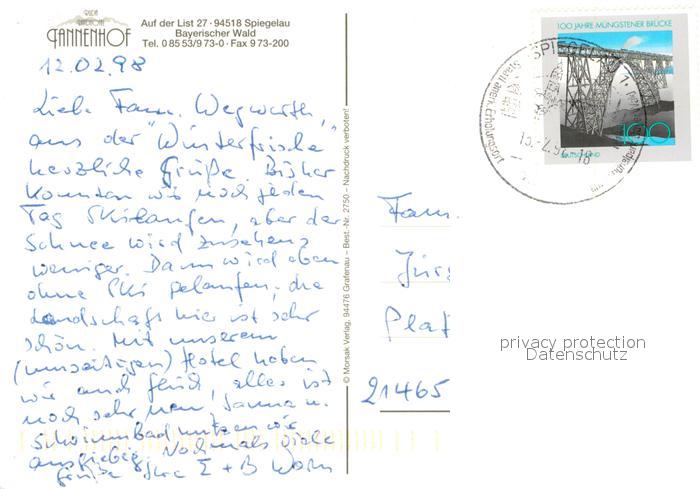 TANNENHOF
Auf der List 27 · 94518 Spiegelau
Bayerischer Wald
Tel. 0 85 53/9 73-0 · Fax 9 73-200
12.02.98
Liebe Fam. Wegwarth,
aus der "Winterfrische"
herzliche Grüße. Bisher
konnten wir noch jeden
Tag Skilaufen, aber der
Schnee wird zusehens
weniger. Dann wird eben
ohne Ski gelaufen, die
Landschaft hier ist sehr
schön. Mit unserem
Hotel haben
wir auch Glück, alles ist
noch sehr neu, Sauna u.
Schwimmbad nutzen wir
ausgiebig. Nochmals viele
Grüße Ihre I + B
© Morsak Verlag, 94476 Grafenau – Best.-Nr. 2750 – Nachdruck verboten!
100 JAHRE MÜNGSTENER BRÜCKE
100
DEUTSCHLAND
SPIEGELAU
Fam.
Jürg
Plat
21465
privacy protection
Datenschutz